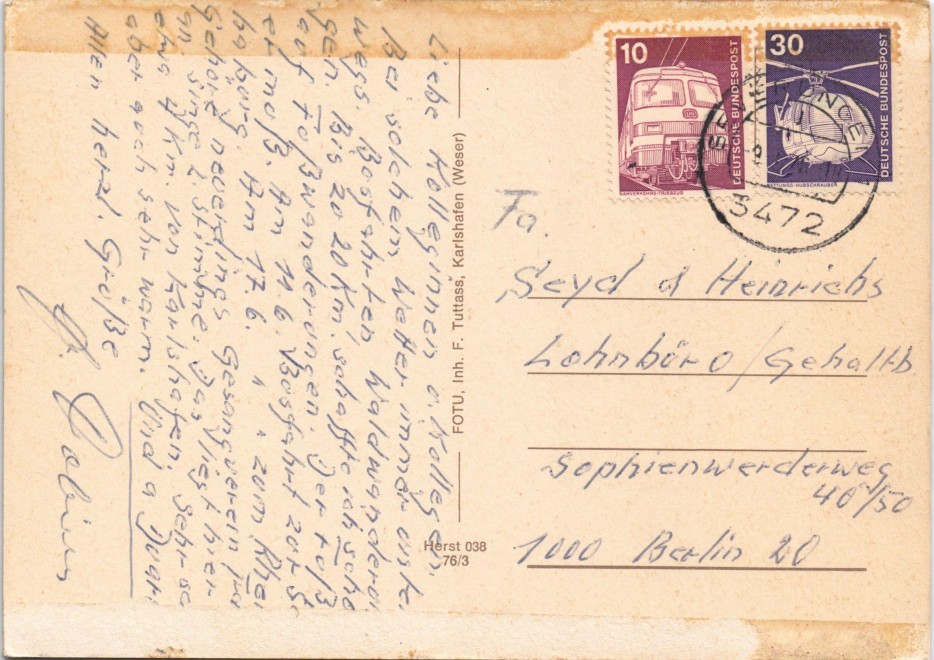 Liebe Kolleginnen u. Kollegen.
Bei solchem Wetter immer unter
wegs. Bosfahrten Waldwanderun
gen. Bis 20 km. schaffte ich schon
auf Toßwanderungen. Der Toß
ter moß. Am 11.6. Bosfahrt zur Sa
baborg. Am 17.6. " " zum Rhei
Gehöre neuerdings Gesangverein
an. Singe 2. Stimme. Das liegt hier
etwa 4 km. von Karlshafen. Sehr sc
aber auch sehr warm. Und
Allen herzl. Größe
FOTU, Inh. F. Tuttass, Karlshafen (Weser)
Herst 038
76/3
10
DEUTSCHE BUNDESPOST
NAHVERKEHRS-TRIEBZUG
30
DEUTSCHE BUNDESPOST
RETTUNGS-HUBSCHRAUBER
3472
Fa.
Seyd & Heinrichs
Lohnbüro / Gehaltb
Sophienwerderweg
40/50
1000 Berlin 20